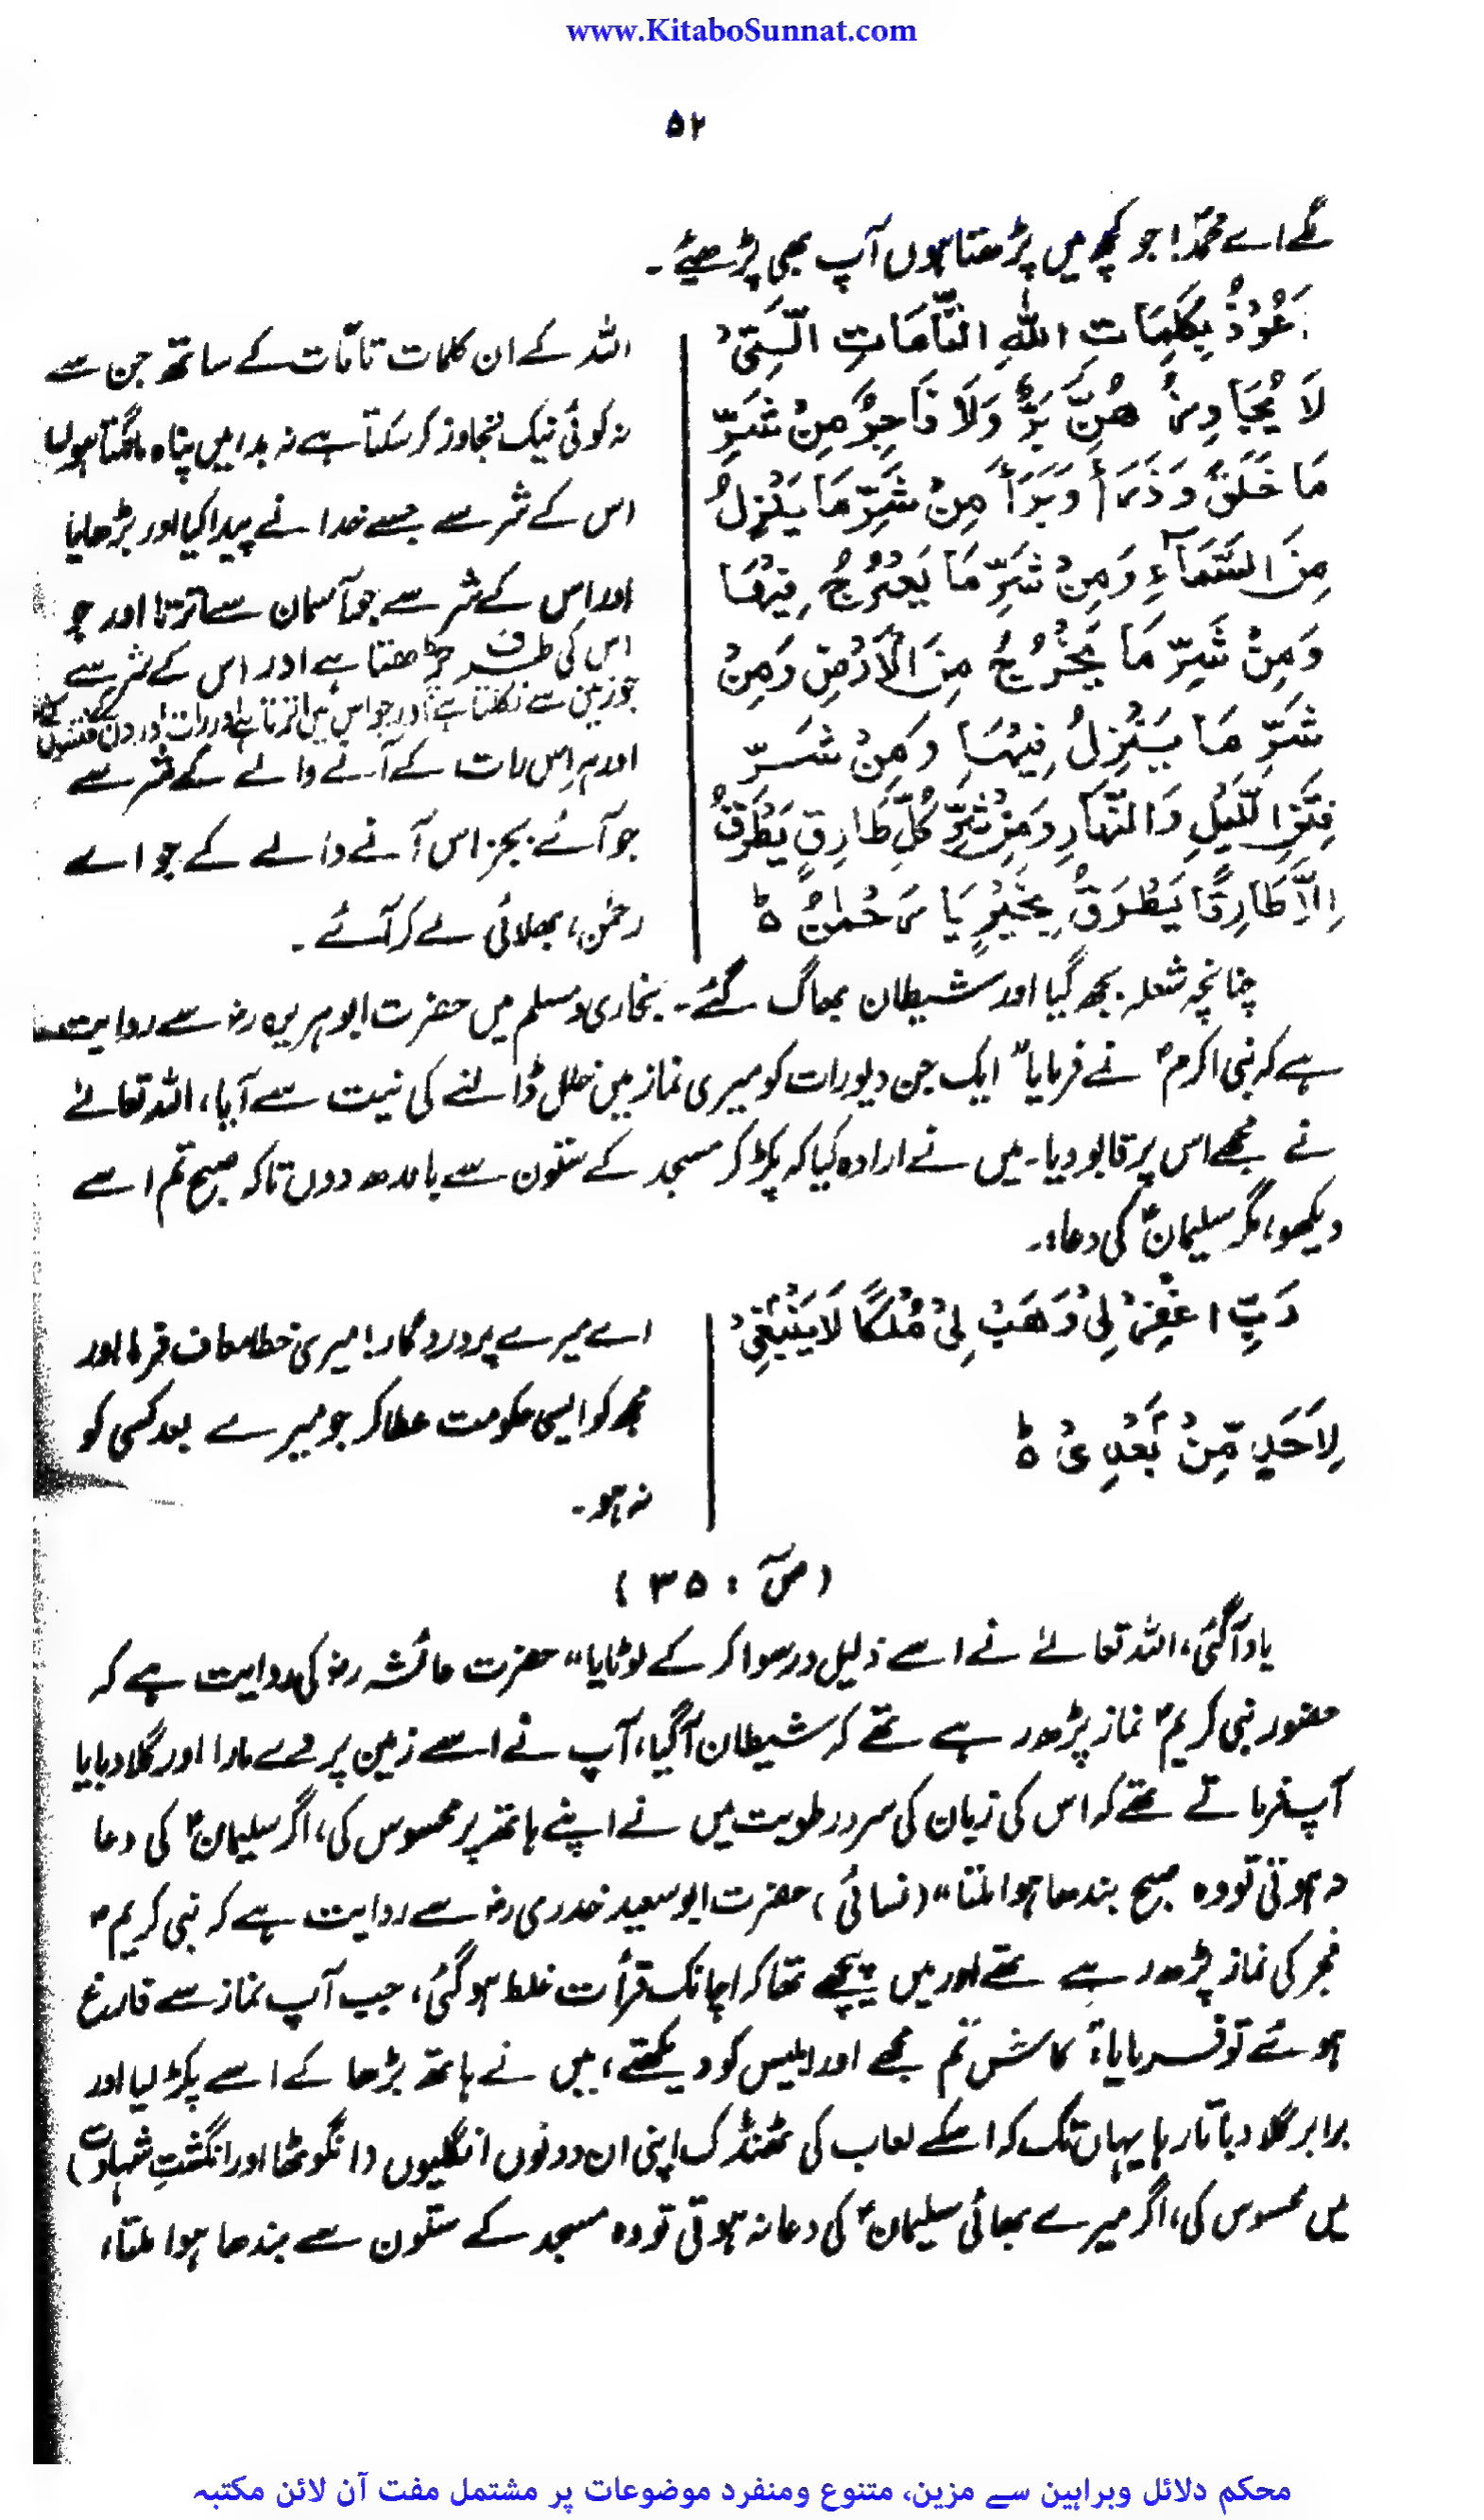 www.KitaboSunnat.com
۵۲
گے اے محمدؐ! جو کچھ میں پڑھتا ہوں آپ بھی پڑھیئے۔
اَعُوْذُ بِکَلِمَاتِ اللّٰہِ التَّامَّاتِ الَّتِیْ
لَا یُجَاوِزُ ھُنَّ بَرٌّ وَلَا فَاجِرٌ مِنْ شَرِّ
مَا خَلَقَ وَذَرَأَ وَبَرَأَ مِنْ شَرِّ مَا یَنْزِلُ
مِنَ السَّمَآءِ وَمِنْ شَرِّ مَا یَعْرُجُ فِیْھَا
وَمِنْ شَرِّ مَا یَخْرُجُ مِنَ الْاَرْضِ وَمِنْ
شَرِّ مَا یَنْزِلُ فِیْھَا وَمِنْ شَرِّ
فِتَنِ الَّلیْلِ وَالنَّھَارِ وَمِنْ شَرِّ کُلِّ طَارِقٍ یَطْرَقُ
اِلَّا طَارِقًا یَطْرَقُ بِخَیْرٍ یَا رَحْمٰنُ ہ
اللہ کے ان کلمات تامّات کے ساتھ جن سے
نہ کوئی نیک تجاوز کر سکتا ہے نہ بد، میں پناہ مانگتا ہوں
اس کے شر سے جسے خدا نے پیدا کیا اور بڑھایا
اور اس کے شر سے جو آسمان سے اترتا اور جو
اس کی طرف چڑھتا ہے اور اس کے شر سے
جو زمین سے نکلتا ہے اور جو اس میں اترتا ہے اور رات اور دن کے فتنوں کے
اور ہر اس رات کے آنے والے کے شر سے
جو آئے بجز اس آنے والے کے جو اے
رحمٰن، بھلائی لے کر آئے۔
چنانچہ شعلہ بجھ گیا اور شیطان بھاگ گئے۔ بخاری و مسلم میں حضرت ابوہریرہ رضہ سے روایت
ہے کہ نبی اکرم ؐ نے فرمایا "ایک جن دیو رات کو میری نماز میں خلل ڈالنے کی نیت سے آیا، اللہ تعالےٰ
نے مجھے اس پر قابو دیا۔ میں نے ارادہ کیا کہ پکڑ کر مسجد کے ستون سے باندھ دوں تاکہ صبح تم اسے
دیکھو، مگر سلیمانؑ کی دعاء۔
رَبِّ اغْفِرْ لِیْ وَھَبْ لِیْ مُلْکًا لَا یَنْبَغِیْ
لِاَحَدٍ مِّنْ بَعْدِیْ ہ
اے میرے پروردگار! میری خطا معاف فرما اور
مجھ کو ایسی حکومت عطا کر جو میرے بعد کسی کو
نہ ہو۔
(صٓ : ۳۵)
یاد آگئی، اللہ تعالےٰ نے اسے ذلیل و رسوا کر کے لوٹایا" حضرت عائشہ رضہ کی روایت ہے کہ
حضور نبی کریمؐ نماز پڑھ رہے تھے کہ شیطان آگیا، آپ نے اسے زمین پر دے مارا اور گلا دبایا
آپ فرماتے تھے کہ اس کی زبان کی سرد رطوبت میں نے اپنے ہاتھ پر محسوس کی، اگر سلیمانؑ کی دعا
نہ ہوتی تو وہ صبح بندھا ہوا ملتا" (نسائی) حضرت ابوسعید خدری رضہ سے روایت ہے کہ نبی کریمؐ
فجر کی نماز پڑھ رہے تھے اور میں پیچھے تھا کہ اچانک قرأت غلط ہوگئی، جب آپ نماز سے فارغ
ہوئے تو فرمایا، کاش تم مجھے اور ابلیس کو دیکھتے، میں نے ہاتھ بڑھا کے اسے پکڑ لیا اور
برابر گلا دباتا رہا یہاں تک کہ اسکے لعاب کی ٹھنڈک اپنی ان دونوں انگلیوں (انگوٹھا اور انگشتِ شہادت)
میں محسوس کی، اگر میرے بھائی سلیمانؑ کی دعا نہ ہوتی تو وہ مسجد کے ستون سے بندھا ہوا ملتا،
محکم دلائل وبراہین سے مزین، متنوع ومنفرد موضوعات پر مشتمل مفت آن لائن مکتبہ